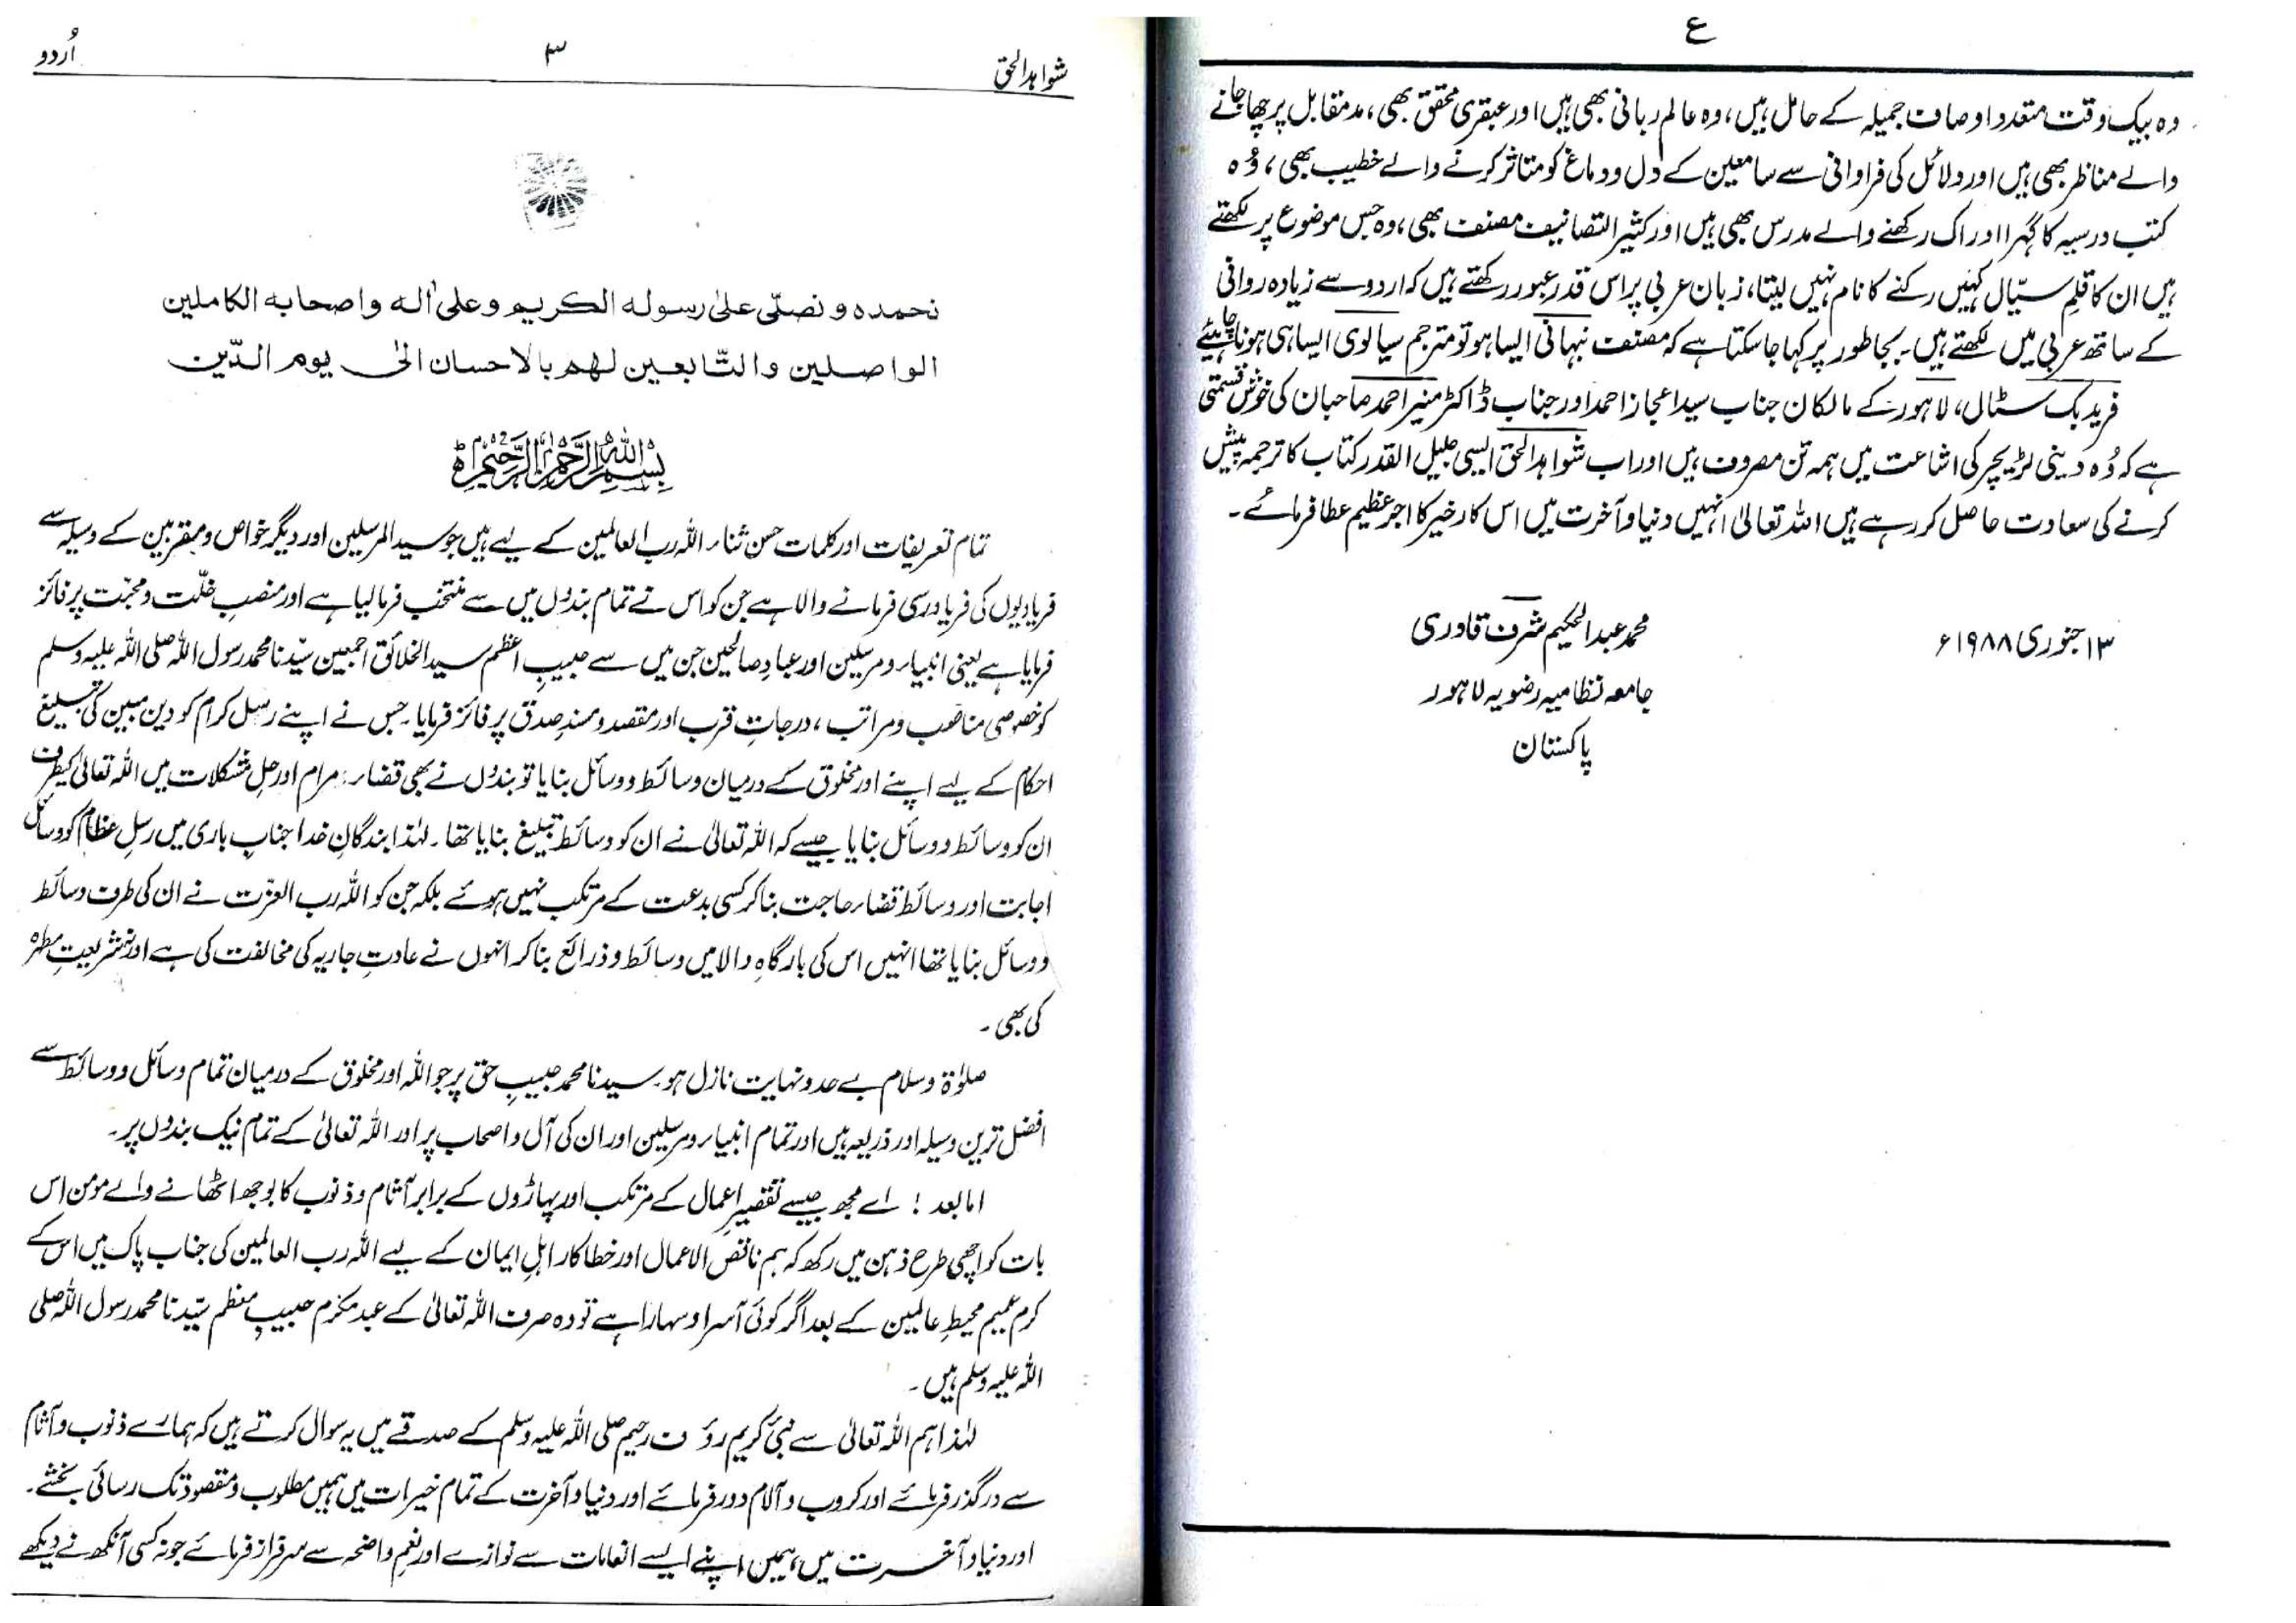 ع
وہ بیک وقت متعدد اوصاف جمیلہ کے حامل ہیں، وہ عالم ربانی بھی ہیں اور عبقری محقق بھی، مدمقابل پر چھا جانے
والے مناظر بھی ہیں اور دلائل کی فراوانی سے سامعین کے دل و دماغ کو متاثر کرنے والے خطیب بھی، وُہ
کتب درسیہ کا گہرا ادراک رکھنے والے مدرس بھی ہیں اور کثیر التصانیف مصنف بھی، وہ جس موضوع پر لکھتے
ہیں ان کا قلمِ سیّال کہیں رکنے کا نام نہیں لیتا، زبان عربی پر اس قدر عبور رکھتے ہیں کہ اردو سے زیادہ روانی
کے ساتھ عربی میں لکھتے ہیں۔ بجا طور پر کہا جا سکتا ہے کہ مصنف نبہانی ایسا ہو تو مترجم سیالوی ایسا ہی ہونا چاہیئے
فرید بک سٹال، لاہور کے مالکان جناب سید اعجاز احمد اور جناب ڈاکٹر منیر احمد صاحبان کی خوش قسمتی
ہے کہ وُہ دینی لڑیچر کی اشاعت میں ہمہ تن مصروف ہیں اور اب شواہد الحق ایسی جلیل القدر کتاب کا ترجمہ پیش
کرنے کی سعادت حاصل کر رہے ہیں اللہ تعالیٰ انہیں دنیا و آخرت میں اس کارِ خیر کا اجر عظیم عطا فرمائے۔
محمد عبدالحکیم شرف قادری
۱۳ جنوری ۱۹۸۸ء
جامعہ نظامیہ رضویہ لاہور
پاکستان
شواہد الحق ۳ اُردو
نحمدہ و نصلّی علیٰ رسولہ الکریم وعلیٰ اٰلہ واصحابہ الکاملین
الواصلین والتّابعین لھم بالاحسان الیٰ یوم الدّین
بِسْمِ اللّٰہِ الرَّحْمٰنِ الرَّحِیْمِ
تمام تعریفات اور کلمات حسن ثناء اللہ رب العالمین کے لیے ہیں جو سید المرسلین اور دیگر خواص و مقربین کے وسیلہ سے
فریادیوں کی فریاد رسی فرمانے والا ہے جن کو اس نے تمام بندوں میں سے منتخب فرما لیا ہے اور منصب خلّت و محبّت پر فائز
فرمایا ہے یعنی انبیاء و مرسلین اور عبادِ صالحین جن میں سے حبیبِ اعظم سید الخلائق اجمعین سیّدنا محمد رسول اللہ صلی اللہ علیہ وسلم
کو خصوصی مناصب و مراتب، درجاتِ قرب اور مقصد و مسندِ صدق پر فائز فرمایا۔ جس نے اپنے رسل کرام کو دین مبین کی تبلیغ
احکام کے لیے اپنے اور مخلوق کے درمیان وسائط و وسائل بنایا تو بندوں نے بھی قضاء مرام اور حل مشکلات میں اللہ تعالیٰ کیطرف
ان کو وسائط و وسائل بنایا جیسے کہ اللہ تعالیٰ نے ان کو وسائط تبلیغ بنایا تھا۔ لہٰذا بندگانِ خدا جنابِ باری میں رسلِ عظام کو وسائل
اجابت اور وسائط قضاء حاجت بنا کر کسی بدعت کے مرتکب نہیں ہوئے بلکہ جن کو اللہ رب العزّت نے ان کی طرف وسائط
و وسائل بنایا تھا انہیں اس کی بارگاہِ والا میں وسائط و ذرائع بنا کر انہوں نے عادتِ جاریہ کی مخالفت کی ہے اور نہ شریعتِ مطہرہ
کی بھی۔
صلوٰۃ و سلام بے حد و نہایت نازل ہو۔ سیدنا محمد حبیبِ حق پر جو اللہ اور مخلوق کے درمیان تمام وسائل و وسائط سے
افضل ترین وسیلہ اور ذریعہ ہیں اور تمام انبیاء و مرسلین اور ان کی آل و اصحاب پر اور اللہ تعالیٰ کے تمام نیک بندوں پر۔
اما بعد! اے مجھ جیسے تقصیرِ اعمال کے مرتکب اور پہاڑوں کے برابر آثام و ذنوب کا بوجھ اٹھانے والے مومن اس
بات کو اچھی طرح ذہن میں رکھ کہ ہم ناقص الاعمال اور خطا کار اہلِ ایمان کے لیے اللہ رب العالمین کی جناب پاک میں اس کے
کرمِ عمیم محیطِ عالمین کے بعد اگر کوئی آسرا و سہارا ہے تو وہ صرف اللہ تعالیٰ کے عبد مکرّم حبیبِ معظم سیّدنا محمد رسول اللہ صلی
اللہ علیہ وسلم ہیں۔
لہٰذا ہم اللہ تعالیٰ سے نبیِّ کریم رؤف رحیم صلی اللہ علیہ وسلم کے صدقے میں یہ سوال کرتے ہیں کہ ہمارے ذنوب و آثام
سے درگذر فرمائے اور کروب و آلام دور فرمائے اور دنیا و آخرت کے تمام خیرات میں ہمیں مطلوب و مقصود تک رسائی بخشے۔
اور دنیا و آخرت میں ہمیں اپنے ایسے انعامات سے نوازے اور نعمِ واضحہ سے سرفراز فرمائے جو نہ کسی آنکھ نے دیکھے